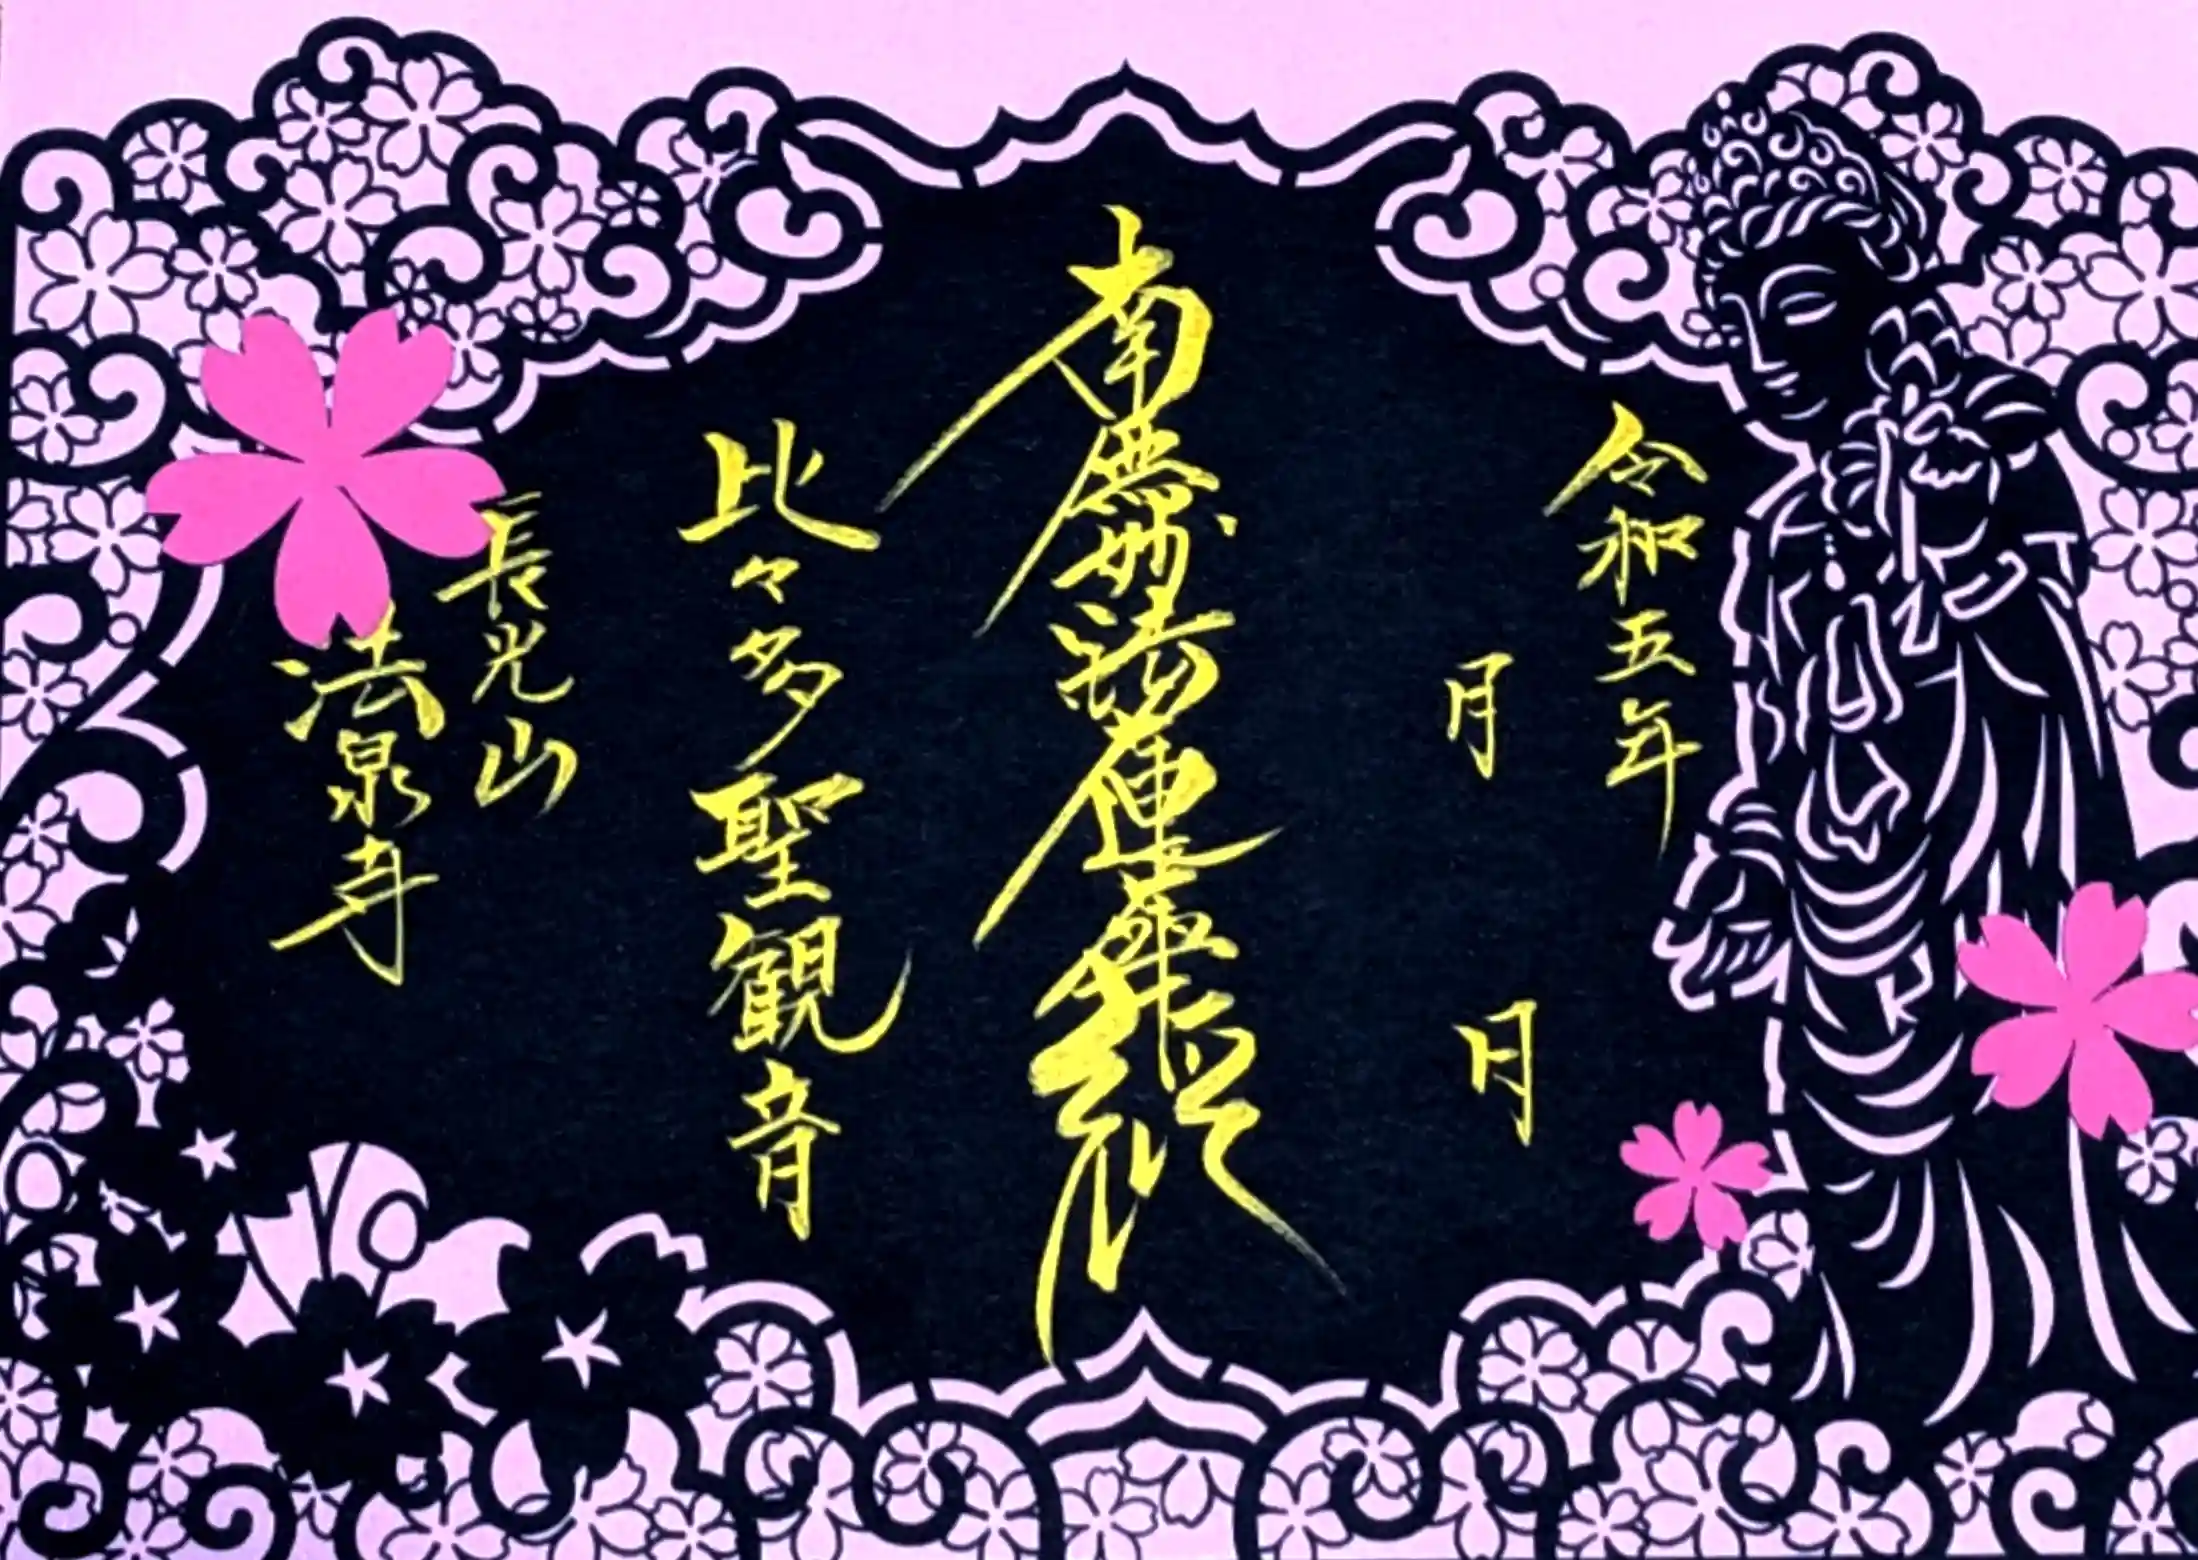 令和五年
月
日
南無妙法蓮華経
比々多聖観音
長光山
法泉寺